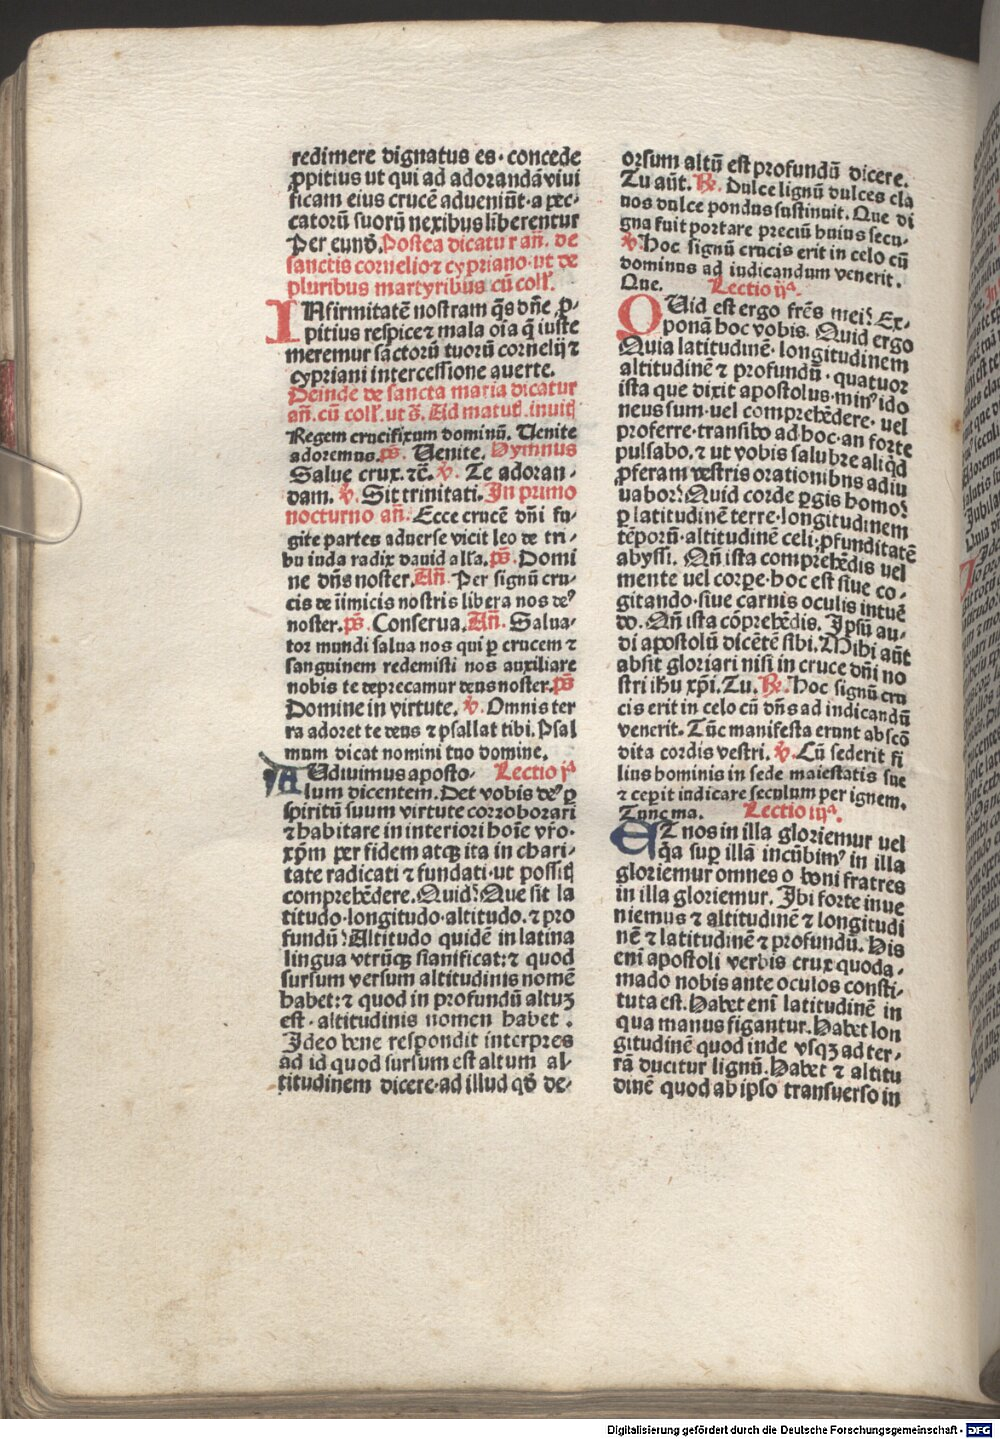 redimere dignatus es· concede
ꝓpitius ut qui ad adorandā vivi
ficam eius crucē adueniūt· a pec⸗
catorū suorū nexibus liberentur
Per eund̄. Postea dicatur añ. de
sanctis cornelio ⁊ cypriano· ut de
pluribus martyribus cū coll̄.
INfirmitatē nostram q̄s dñe ꝓ⸗
pitius respice ⁊ mala oīa q̄ iuste
meremur sāctorū tuorū cornelij ⁊
cypriani intercessione auerte.
Deinde de sancta maria dicatur
añ. cū coll̄. ut s̄.
Regem crucifixum dominū. Uenite
adoremus. ps̄. Uenite. Hymnus
Salue crux. ⁊c̄. ℣. Te adoran⸗
dam. ℣. Sit trinitati. In primo
nocturno añ. Ecce crucē dn̄i fu⸗
gite partes aduerse vicit leo de tri⸗
bu iuda radix dauid all̄a. ps̄. Domi
ne dn̄s noster. Añ. Per signū cru⸗
cis de iīmicis nostris libera nos deꝰ
noster. ps̄. Conserua. Añ. Salua⸗
tor mundi salua nos qui ꝑ crucem ⁊
sanguinem redemisti nos auxiliare
nobis te deprecamur deus noster. ps̄
Domine in virtute. ℣. Omnis ter
ra adoret te deus ⁊ psallat tibi. Psal
mum dicat nomini tuo domine.
AUdiuimus aposto⸗ Lectio jᵃ
lum dicentem. Det vobis deꝰ ꝑ
spiritū suum virtute corroborari
⁊ habitare in interiori hoīe vr̄o·
xp̄m per fidem atqꝫ ita in chari⸗
tate radicati ⁊ fundati· ut possitꝭ
comprehēdere. Quid? Que sit la
titudo· longitudo· altitudo. ⁊ pro
fundū? Altitudo quidē in latina
lingua vtrūqꝫ significat: ⁊ quod
sursum versum altitudinis nomē
habet: ⁊ quod in profundū altuꝫ
est· altitudinis nomen habet.
Ideo bene respondit interpres
ad id quod sursum est altum al⸗
titudinem dicere· ad illud qd̄ de⸗
orsum altū est profundū dicere.
Tu aūt. ℟. Dulce lignū dulces cla
uos dulce pondus sustinuit. Que di
gna fuit portare preciū huius secu⸗
℣. Hoc signū crucis erit in celo cū
dominus ad iudicandum venerit.
Que. Lectio ijᵃ.
QUid est ergo frēs mei? Ex⸗
ponā hoc vobis. Quid ergo
Quia latitudinē· longitudinem
altitudinē ⁊ profundū· quatuor
ista que dixit apostolus· minꝰ ido
neus sum· vel comprehēdere· vel
proferre· transibo ad hoc· an forte
pulsabo. ⁊ ut vobis salubre aliqd̄
ꝓferam vestris orationibus adiu
uabor? Quid corde ꝑgis homo?
ꝑ latitudinē terre· longitudinem
tēporū· altitudinē celi: ꝓfunditatē
abyssi. Qn̄ ista comprehēdis vel
mente vel corpe· hoc est siue co⸗
gitando· siue carnis oculis intuē
do. Qn̄ ista cōprehēdis. Ipsū au⸗
di apostolū dicētē sibi. Mihi aūt
absit gloriari nisi in cruce dn̄i no
stri ihū xp̄i. Tu. ℟. Hoc signū cru
cis erit in celo cū dn̄s ad iudicandū
venerit. Tūc manifesta erunt abscō
dita cordis vestri. ℣. Cū sederit fi
lius hominis in sede maiestatis sue
⁊ ceperit iudicare seculum per ignem.
Tunc ma. Lectio iijᵃ.
ET nos in illa gloriemur vel
q̄a sup illā incūbimꝰ in illa
gloriemur omnes o boni fratres
in illa gloriemur. Ibi forte inue
niemus ⁊ altitudinē ⁊ longitudi
nē ⁊ latitudinē ⁊ profundū. His
enī apostoli verbis crux quoda⸗
mado nobis ante oculos consti⸗
tuta est. Habet enī latitudinē in
qua manus figantur. Habet lon
gitudinē quod inde vsqꝫ ad ter⸗
rā ducitur lignū. Habet ⁊ altitu
dinē quod ab ipso transuerso in
Digitalisierung gefördert durch die Deutsche Forschungsgemeinschaft - DFG